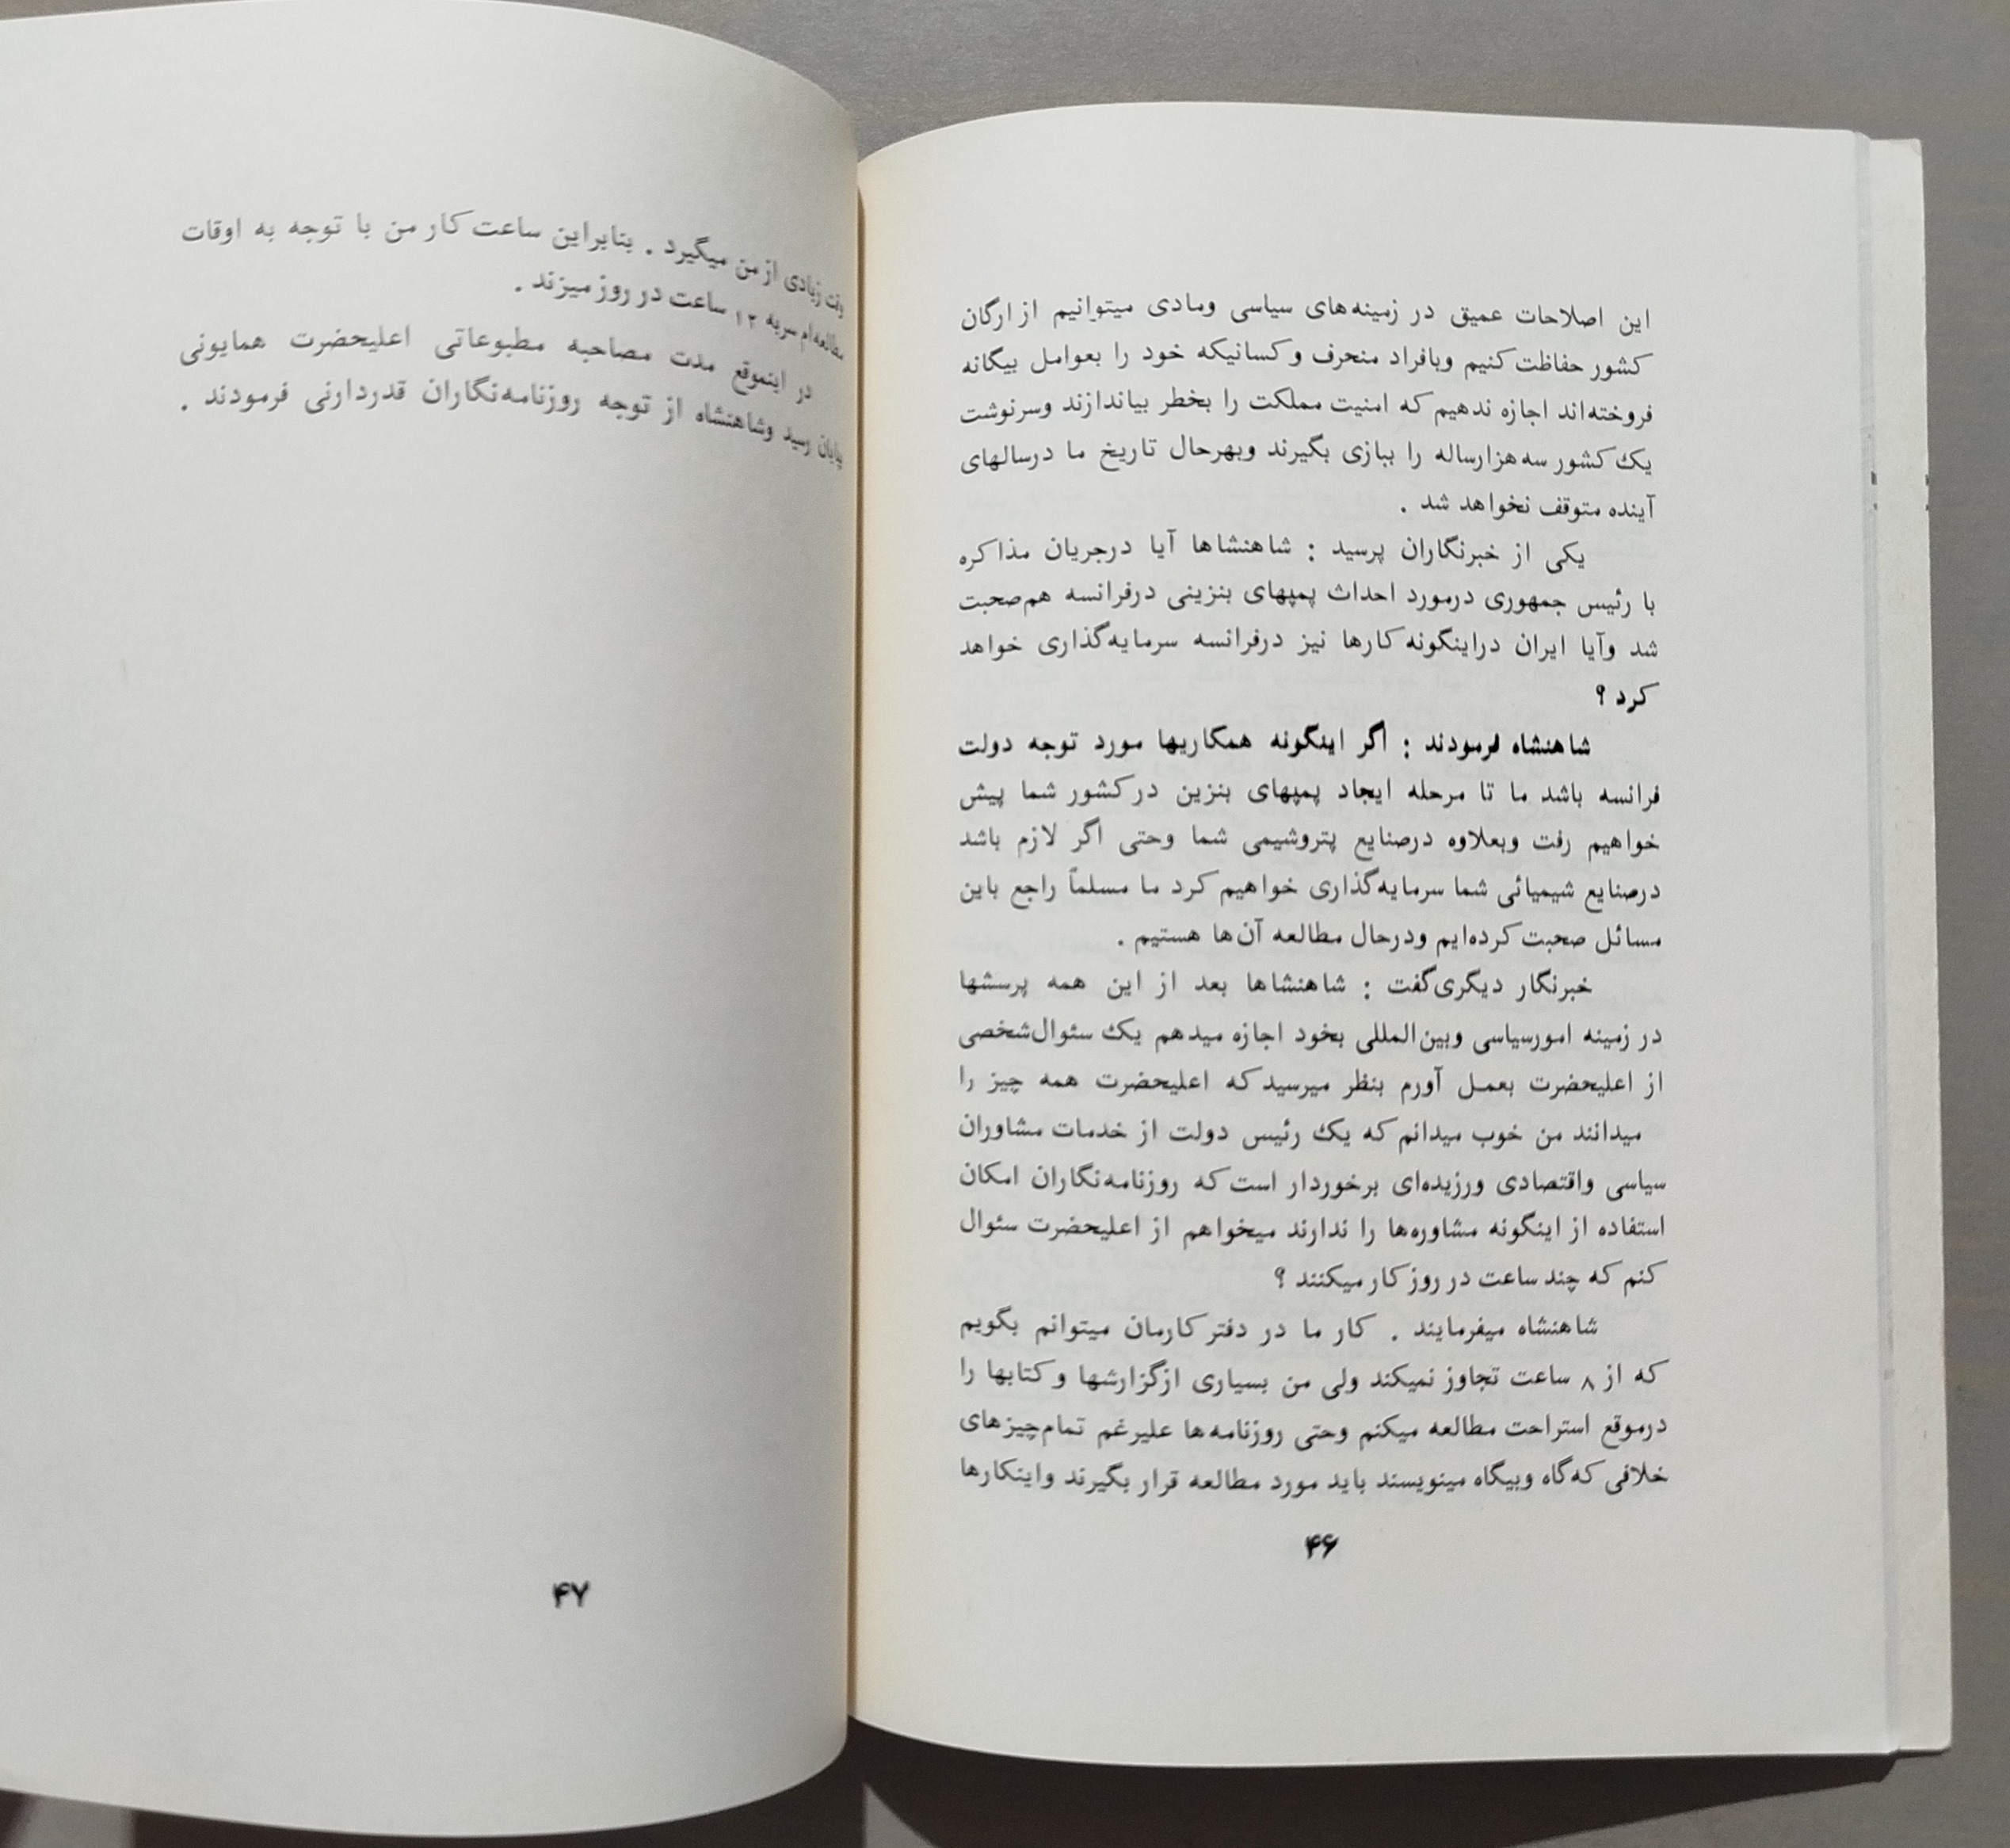 این اصلاحات عمیق در زمینه‌های سیاسی ومادی میتوانیم از ارگان
کشور حفاظت کنیم وبافراد منحرف و کسانیکه خود را بعوامل بیگانه
فروخته‌اند اجازه ندهیم که امنیت مملکت را بخطر بیاندازند وسرنوشت
یک کشور سه هزارساله را ببازی بگیرند وبهرحال تاریخ ما درسالهای
آینده متوقف نخواهد شد .
یکی از خبرنگاران پرسید : شاهنشاها آیا درجریان مذاکره
با رئیس جمهوری درمورد احداث پمپهای بنزینی درفرانسه هم‌صحبت
شد وآیا ایران دراینگونه کارها نیز درفرانسه سرمایه‌گذاری خواهد
کرد ؟
شاهنشاه فرمودند : اگر اینگونه همکاریها مورد توجه دولت
فرانسه باشد ما تا مرحله ایجاد پمپهای بنزین در کشور شما پیش
خواهیم رفت وبعلاوه درصنایع پتروشیمی شما وحتی اگر لازم باشد
درصنایع شیمیائی شما سرمایه‌گذاری خواهیم کرد ما مسلماً راجع باین
مسائل صحبت کرده‌ایم ودرحال مطالعه آن‌ها هستیم .
خبرنگار دیگری گفت : شاهنشاها بعد از این همه پرسشها
در زمینه امورسیاسی وبین‌المللی بخود اجازه میدهم یک سئوال‌شخصی
از اعلیحضرت بعمل آورم بنظر میرسید که اعلیحضرت همه چیز را
میدانند من خوب میدانم که یک رئیس دولت از خدمات مشاوران
سیاسی واقتصادی ورزیده‌ای برخوردار است که روزنامه‌نگاران امکان
استفاده از اینگونه مشاوره‌ها را ندارند میخواهم از اعلیحضرت سئوال
کنم که چند ساعت در روز کار میکنند ؟
شاهنشاه میفرمایند . کار ما در دفتر کارمان میتوانم بگویم
که از ۸ ساعت تجاوز نمیکند ولی من بسیاری ازگزارشها و کتابها را
درموقع استراحت مطالعه میکنم وحتی روزنامه‌ها علیرغم تمام‌چیزهای
خلافی که‌گاه وبیگاه مینویسند باید مورد مطالعه قرار بگیرند واینکارها
۴۶
وقت زیادی از من میگیرد . بنابراین ساعت کار من با توجه به اوقات
مطالعه‌ام سربه ۱۲ ساعت در روز میزند .
در اینموقع مدت مصاحبه مطبوعاتی اعلیحضرت همایونی
بپایان رسید وشاهنشاه از توجه روزنامه‌نگاران قدردارنی فرمودند .
۴۷